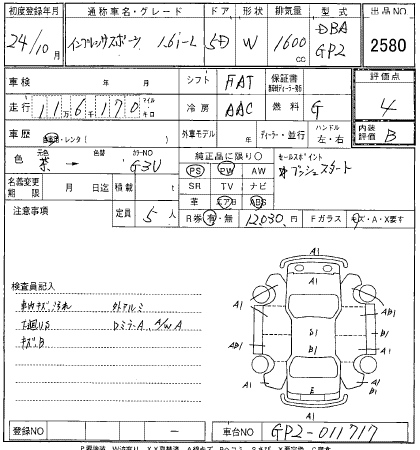 初度登録年月 通称車名・グレード ドア 形状 排気量 型式 出品NO
24/10月 インプレッサスポーツ 1.6i-L 5D W 1600cc DBA GP2 2580
車検 年 月 シフト FAT 保証書 評価点
走行 116170 マイル キロ 冷房 AAC 燃料 G 4
車歴 自家用・レンタ( ) 外車モデル ディーラー・並行 ハンドル 左・右 内装評価 B
色 元色 茶 → 色替 カラーNO G3U 純正品に限り〇 セールスポイント
PS PW AW プッシュスタート
名義変更期限 月 日迄 積載 t SR TV ナビ
革 エアB ABS
注意事項 定員 5人 R券 有・無 12,030円 Fガラス キズ・A・X要す
検査員記入
車内キズ、汚れ 外アルミ
下廻りS DミラーA、A/W A
キズB
A1
A1 A1
A1
AB1 B1 AB1
B1
A1 A1
E
A1
登録NO 車台NO GP2-011717